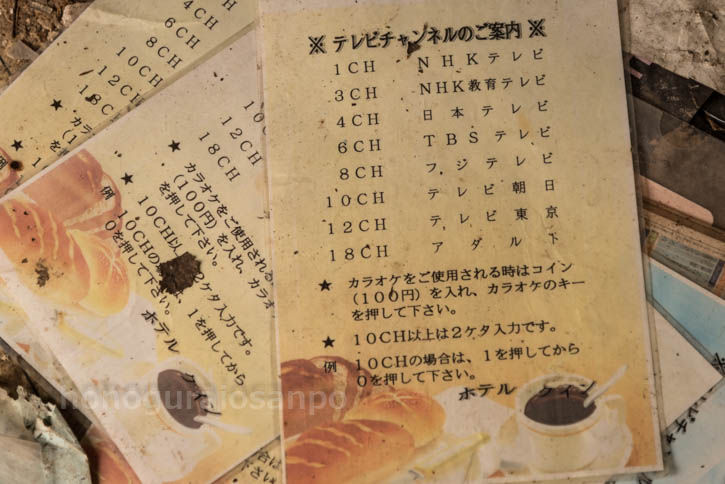 ※ テレビチャンネルのご案内 ※
1CH NHKテレビ
3CH NHK教育テレビ
4CH 日本テレビ
6CH TBSテレビ
8CH フジテレビ
10CH テレビ朝日
12CH テレビ東京
18CH アダルト
★ カラオケをご使用される時はコイン
(100円)を入れ、カラオケのキー
を押して下さい。
★ 10CH以上は2ケタ入力です。
例 10CHの場合は、1を押してから
0を押して下さい。
ホテル クイン
10CH
12CH
18CH
★ カラオケをご使用される
(100円)を入れ、カラオ
を押して下さい。
★ 10CH以 2ケタ入力です。
例 10CHの 合は、1を押してから
0を押して下さい。
ホテル クイン
4CH
6CH
8CH
10CH
12CH
18CH
★ カラオケ
(1
を
★ 1
例
nonoguraiosanpo